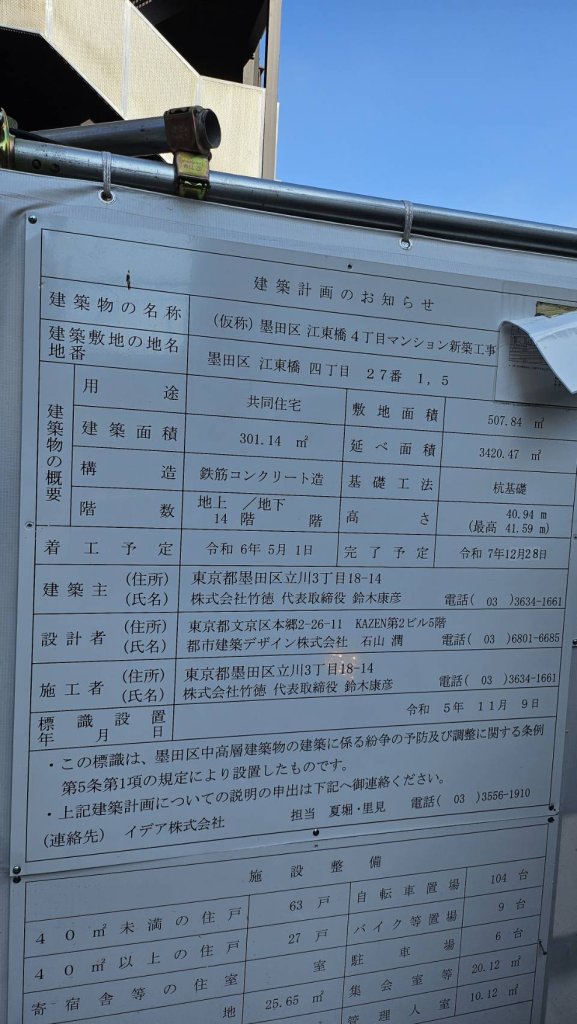 建築計画のお知らせ
建築物の名称 (仮称)墨田区 江東橋4丁目マンション新築工事
建築敷地の地名地番 墨田区 江東橋 四丁目 27番 1,5
建築物の概要
用途 共同住宅 敷地面積 507.84 ㎡
建築面積 301.14 ㎡ 延べ面積 3420.47 ㎡
構造 鉄筋コンクリート造 基礎工法 杭基礎
階数 地上 14 階 /地下 階 高さ 40.94 m (最高 41.59 m)
着工予定 令和 6年 5月 1日 完了予定 令和 7年12月28日
建築主 (住所) 東京都墨田区立川3丁目18-14
(氏名) 株式会社竹徳 代表取締役 鈴木康彦 電話( 03 )3634-1661
設計者 (住所) 東京都文京区本郷2-26-11 KAZEN第2ビル5階
(氏名) 都市建築デザイン株式会社 石山 潤 電話( 03 )6801-6685
施工者 (住所) 東京都墨田区立川3丁目18-14
(氏名) 株式会社竹徳 代表取締役 鈴木康彦 電話( 03 )3634-1661
標識設置年月日 令和 5年 11月 9日
・この標識は、墨田区中高層建築物の建築に係る紛争の予防及び調整に関する条例
第5条第1項の規定により設置したものです。
・上記建築計画についての説明の申出は下記へ御連絡ください。
(連絡先) イデア株式会社 担当 夏堀・里見 電話( 03 )3556-1910
施設整備
40㎡未満の住戸 63 戸 自転車置場 104 台
40㎡以上の住戸 27 戸 バイク等置場 9 台
寄宿舎等の住室 室 駐車場 6 台
地 25.65 ㎡ 集会室等 20.12 ㎡
管理人室 10.12 ㎡